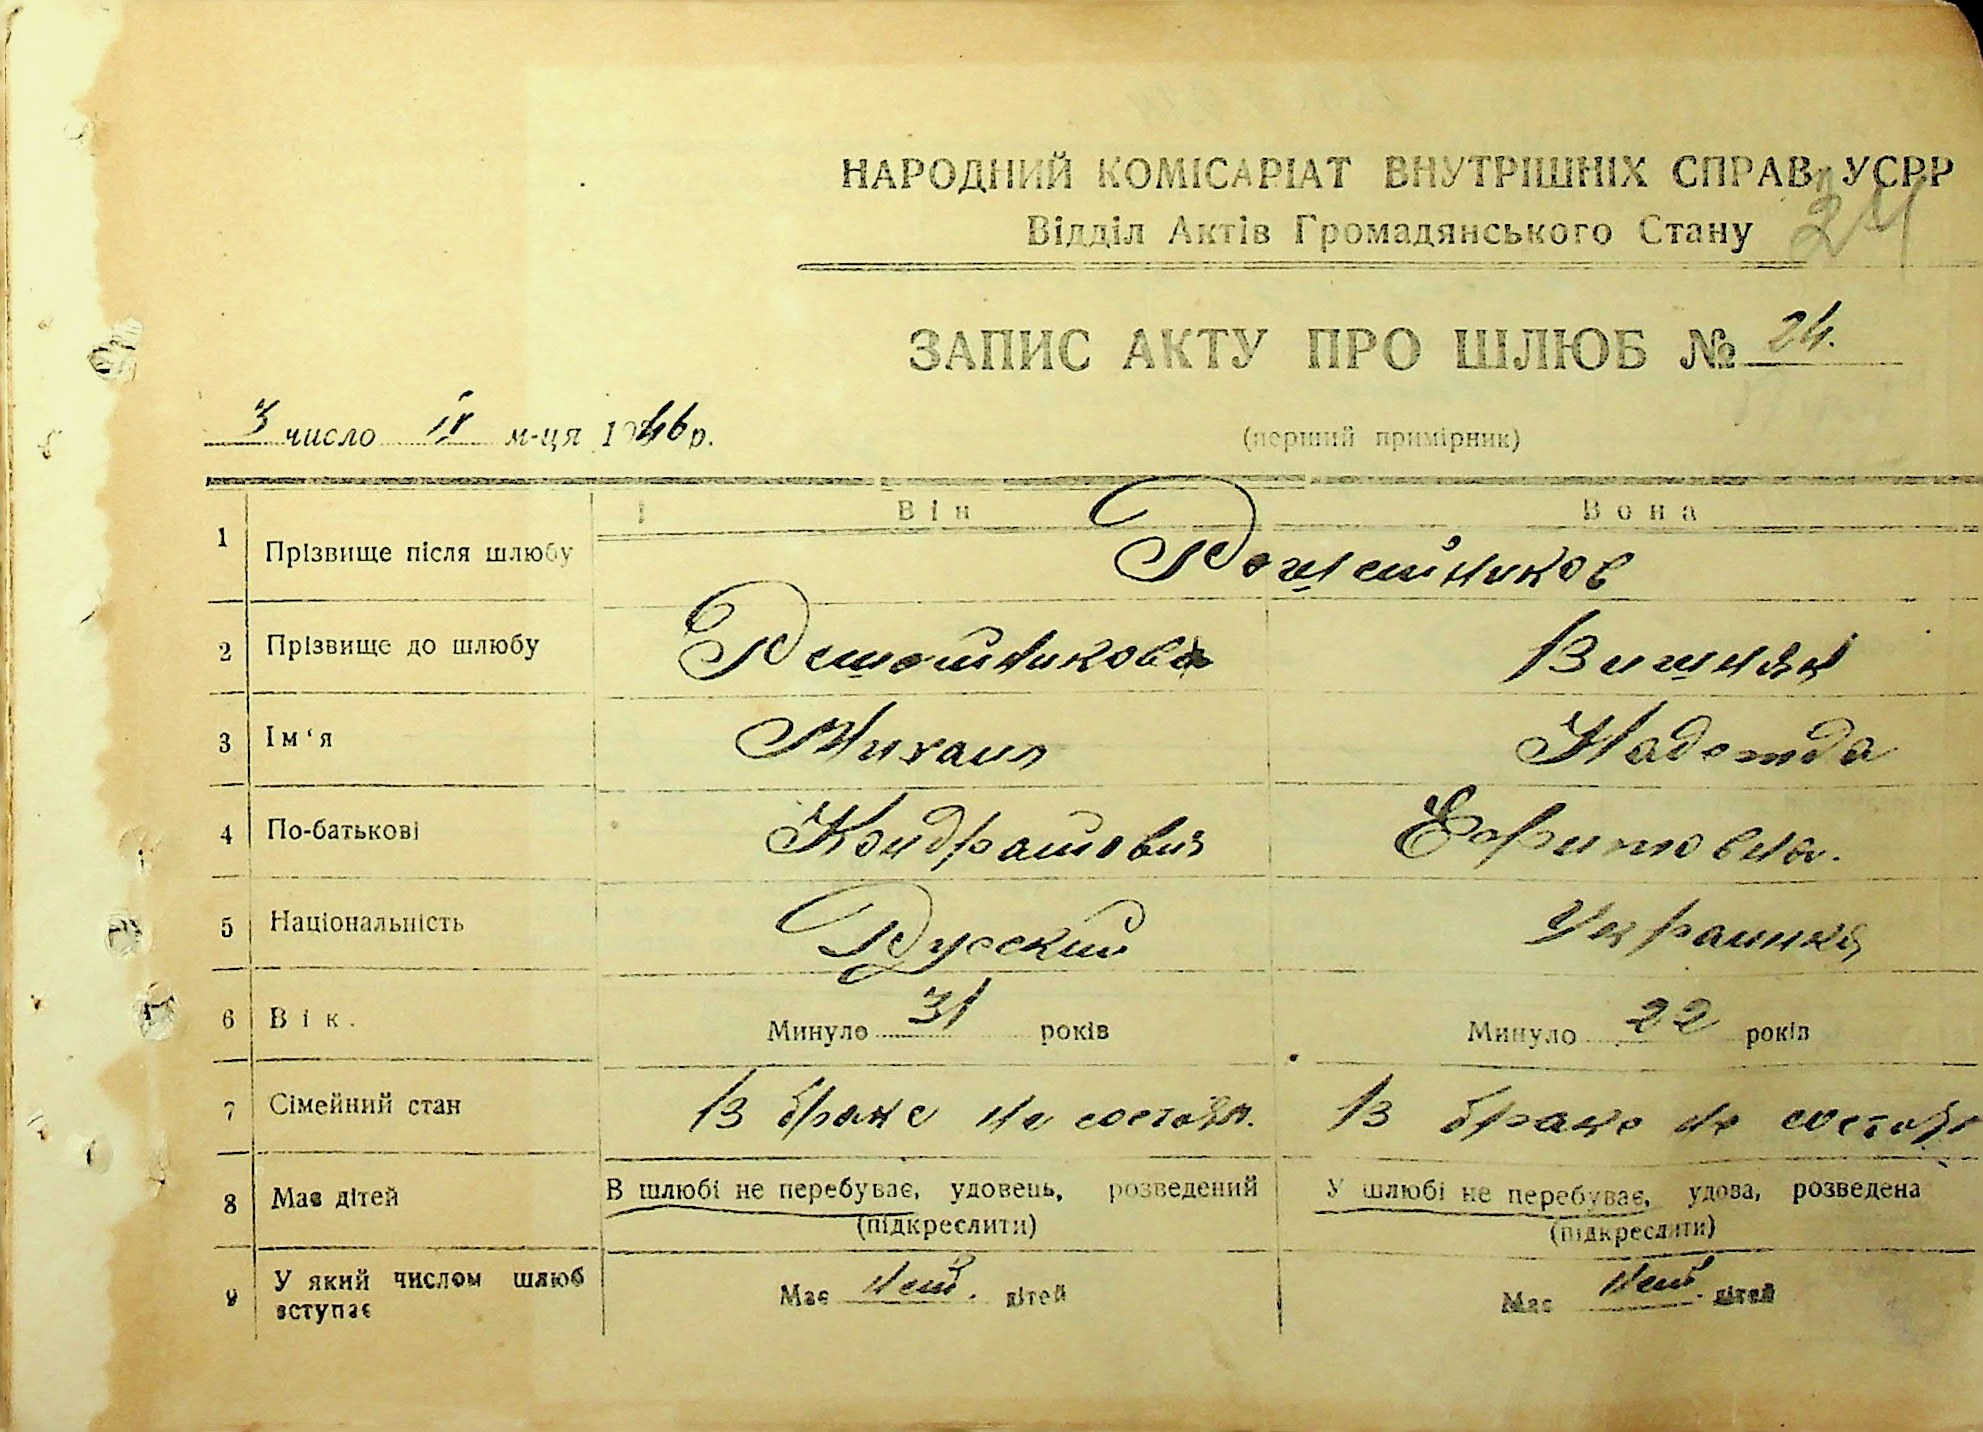 НАРОДНИЙ КОМІСАРІАТ ВНУТРІШНІХ СПРАВ УСРР
24
Відділ Актів Громадянського Стану
ЗАПИС АКТУ ПРО ШЛЮБ № 24.
3 число IV м-ця 1946 р.
(перший примірник)
Він Вона
1 Прізвище після шлюбу Решетников
2 Прізвище до шлюбу Решетников Вишняк
3 Ім‘я Михаил Надежда
4 По-батькові Кондратович Ефимовна.
5 Національність Русский Украинка
6 Вік. Минуло 31 років Минуло 22 років
7 Сімейний стан В браке не состоял. В браке не состоял
8 Має дітей В шлюбі не перебуває, удовець, розведений У шлюбі не перебуває, удова, розведена
(підкреслити) (підкреслити)
9 У який числом шлюб вступає Має нет. дітей Має нет. дітей